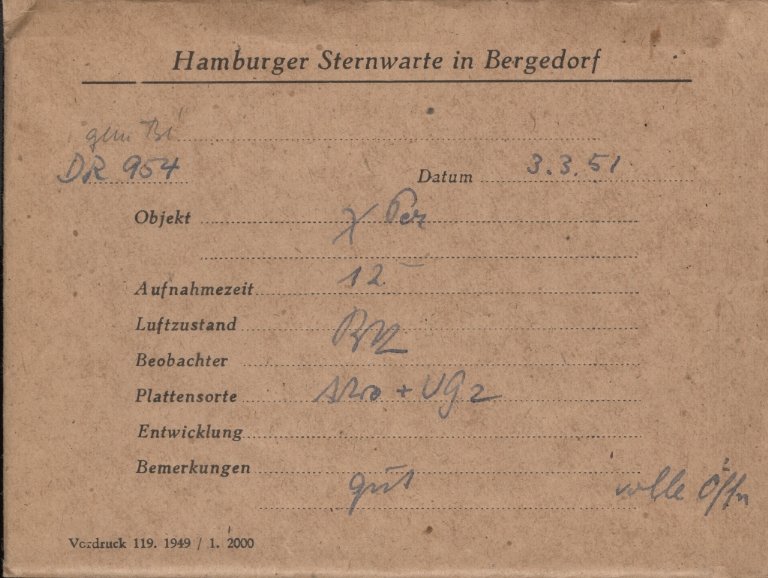 Hamburger Sternwarte in Bergedorf
DR 954 Datum 3.3.51
Objekt χ Per
Aufnahmezeit 12
Luftzustand
Beobachter
Plattensorte + UG2
Entwicklung
Bemerkungen
gut volle Öffn
Vordruck 119. 1949 / 1. 2000